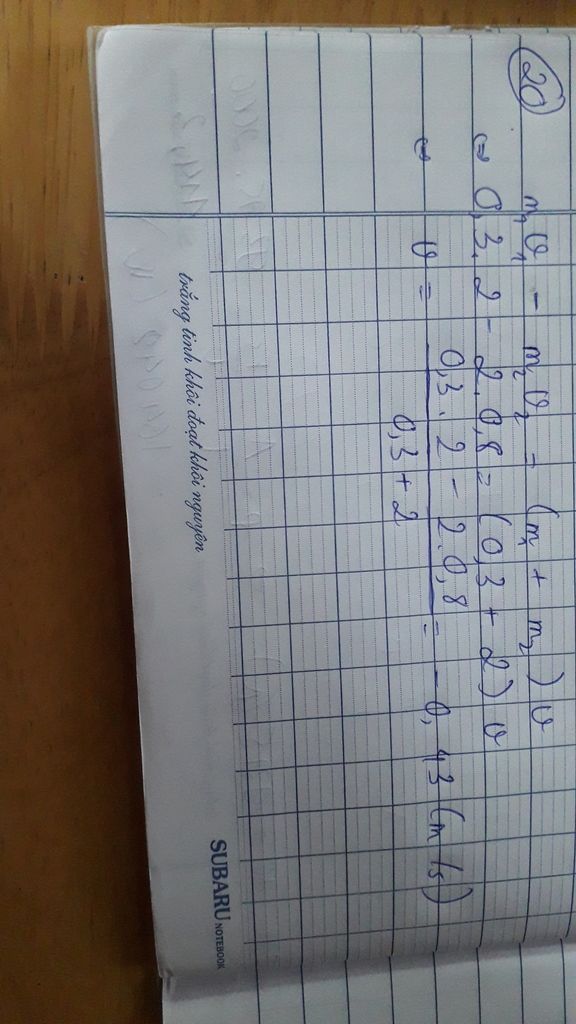 20
m₁v₁ - m₂v₂ = (m₁ + m₂)v
⇔ 0,3.2 - 2.0,8 = (0,3 + 2)v
⇔ v = \frac{0,3.2 - 2.0,8}{0,3 + 2} = -0,43 (m/s)
trắng tinh khôi đoạt khôi nguyên
SUBARU NOTEBOOK